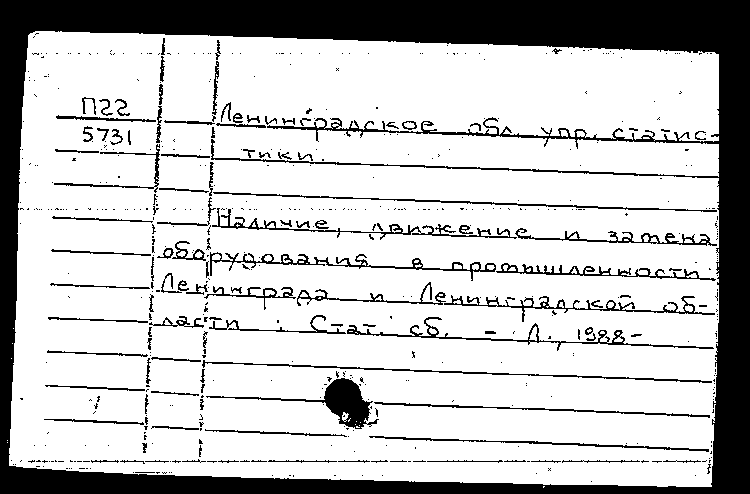 П22
5731
Ленинградское обл. упр. статис-
тики.
Наличие, движение и замена
оборудования в промышленности
Ленинграда и Ленинградской об-
ласти : Стат. сб. - Л., 1988-